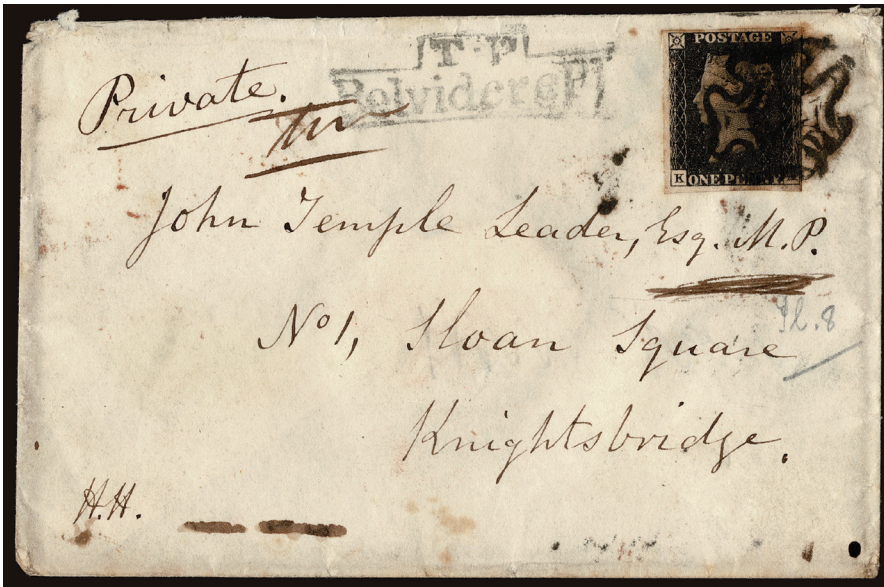 T.P
Belvidere P
POSTAGE
K ONE PENNY
Private.
John Temple Leader, Esq. M.P.
No 1, Sloan Square
Pl. 8
Knightsbridge.
H.H.